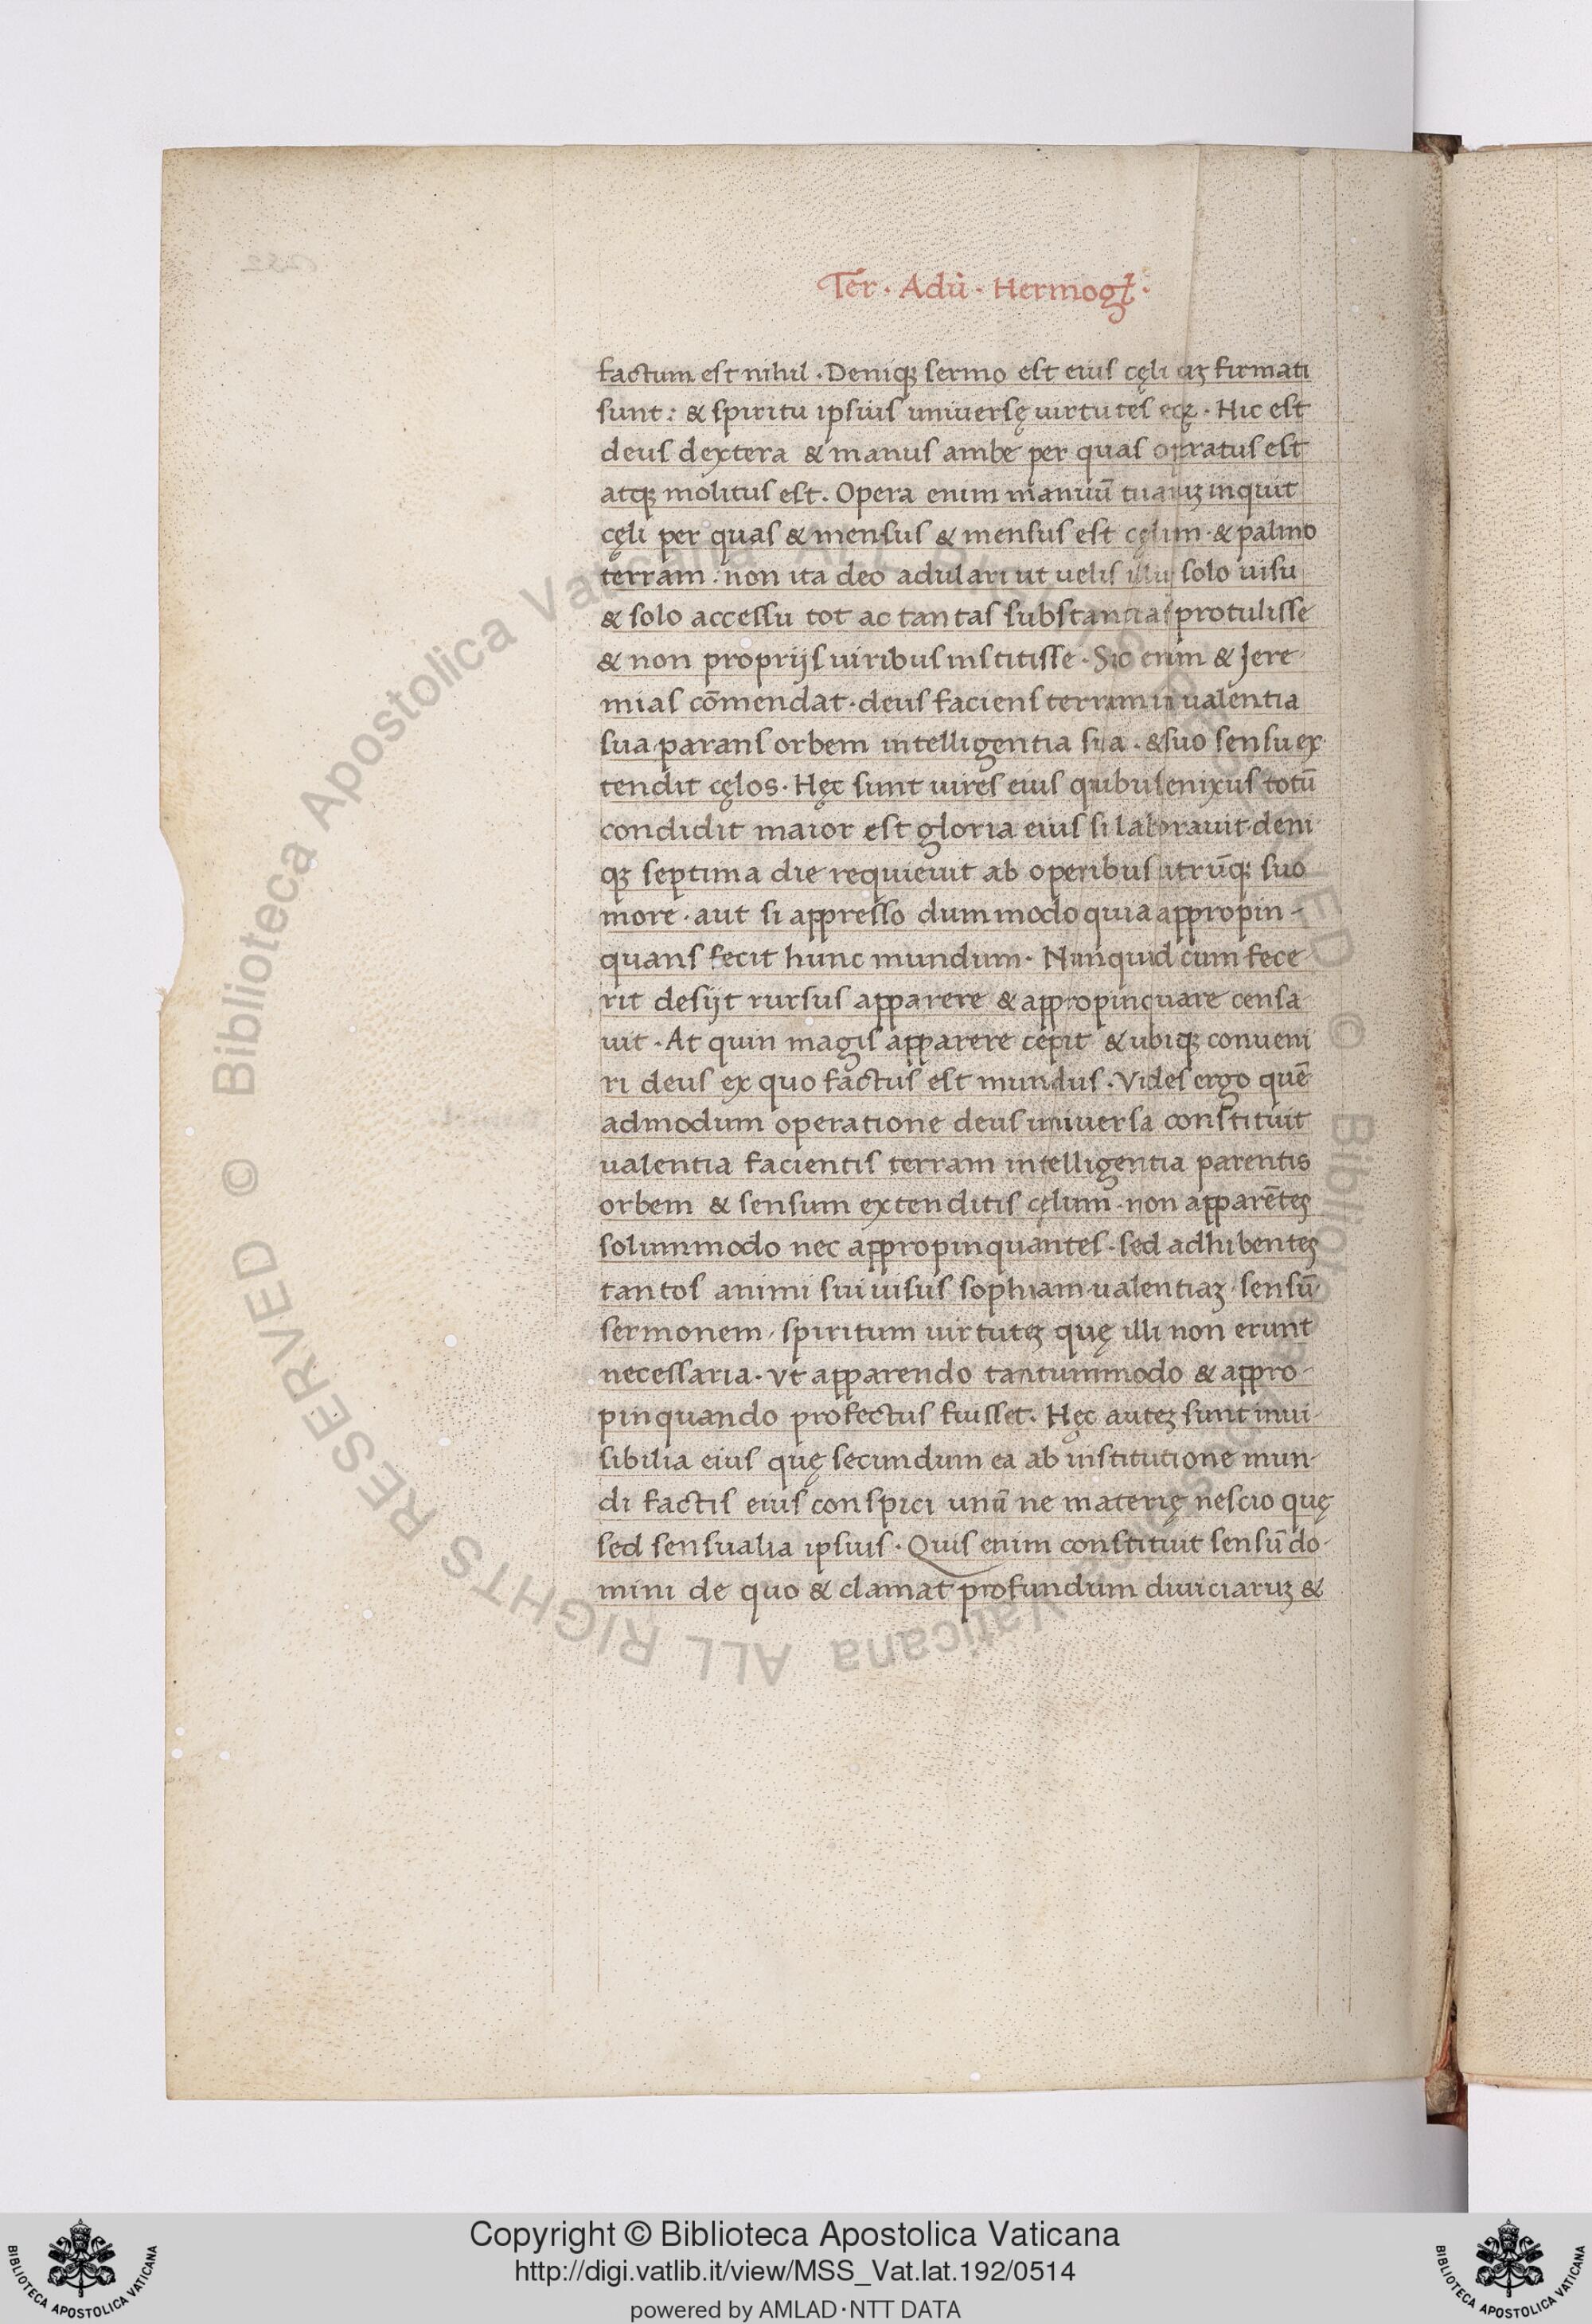 Ter · Adū · Hermogꝭ ·
factum est nihil · Deniqꝫ sermo est eius cęli eiꝫ firmati
sunt : & spiritu ipsius uniuersę uirtutes eoꝝ · Hic est
deus dextera & manus ambe per quas operatus est
atqꝫ molitus est . Opera enim manuū tuaruꝫ inquit
cęli per quas & mensus & mensus est cęlum · & palmo
terram : non ita deo adulari ut uelis illū solo uisu
& solo accessu tot ac tantas substantias protulisse
& non proprijs uiribus institisse · Sic enim & Jere
mias cōmendat · deus faciens terram in ualentia
sua parans orbem intelligentia sua · & suo sensu ex
tendit cęlos · Hęc sunt uires eius quibus enixus totū
condidit maior est gloria eius si laborauit · deni
qꝫ septima die requieuit ab operibus utrūqꝫ suo
more · aut si appresso dummodo quia appropin-
quans fecit hunc mundum · Nunquid cum fece
rit desijt rursus apparere & appropinquare censa
uit · At quin magis apparere cepit & ubiqꝫ conueni
ri deus ex quo factus est mundus · Vides ergo quē
admodum operatione deus uniuersa constituit
ualentia facientis terram intelligentia parentis
orbem & sensum extenditis cęlum · non apparētes
solummodo nec appropinquantes · sed adhibentes
tantos animi sui uisus sophiam ualentiaꝫ · sensū
sermonem , spiritum uirtuteꝫ quę illi non erunt
necessaria · vt apparendo tantummodo & appro-
pinquando profectus fuisset . Hęc auteꝫ sunt inui-
sibilia eius quę secundum ea ab institutione mun-
di factis eius conspici unū ne materię nescio quę
sed sensualia ipsius · Quis enim constituit sensū do-
mini de quo & clamat profundum diuiciaruꝫ &
© Biblioteca Apostolica Vaticana ALL RIGHTS RESERVED
Copyright © Biblioteca Apostolica Vaticana
http://digi.vatlib.it/view/MSS_Vat.lat.192/0514
powered by AMLAD·NTT DATA
BIBLIOTECA APOSTOLICA VATICANA
BIBLIOTECA APOSTOLICA VATICANA